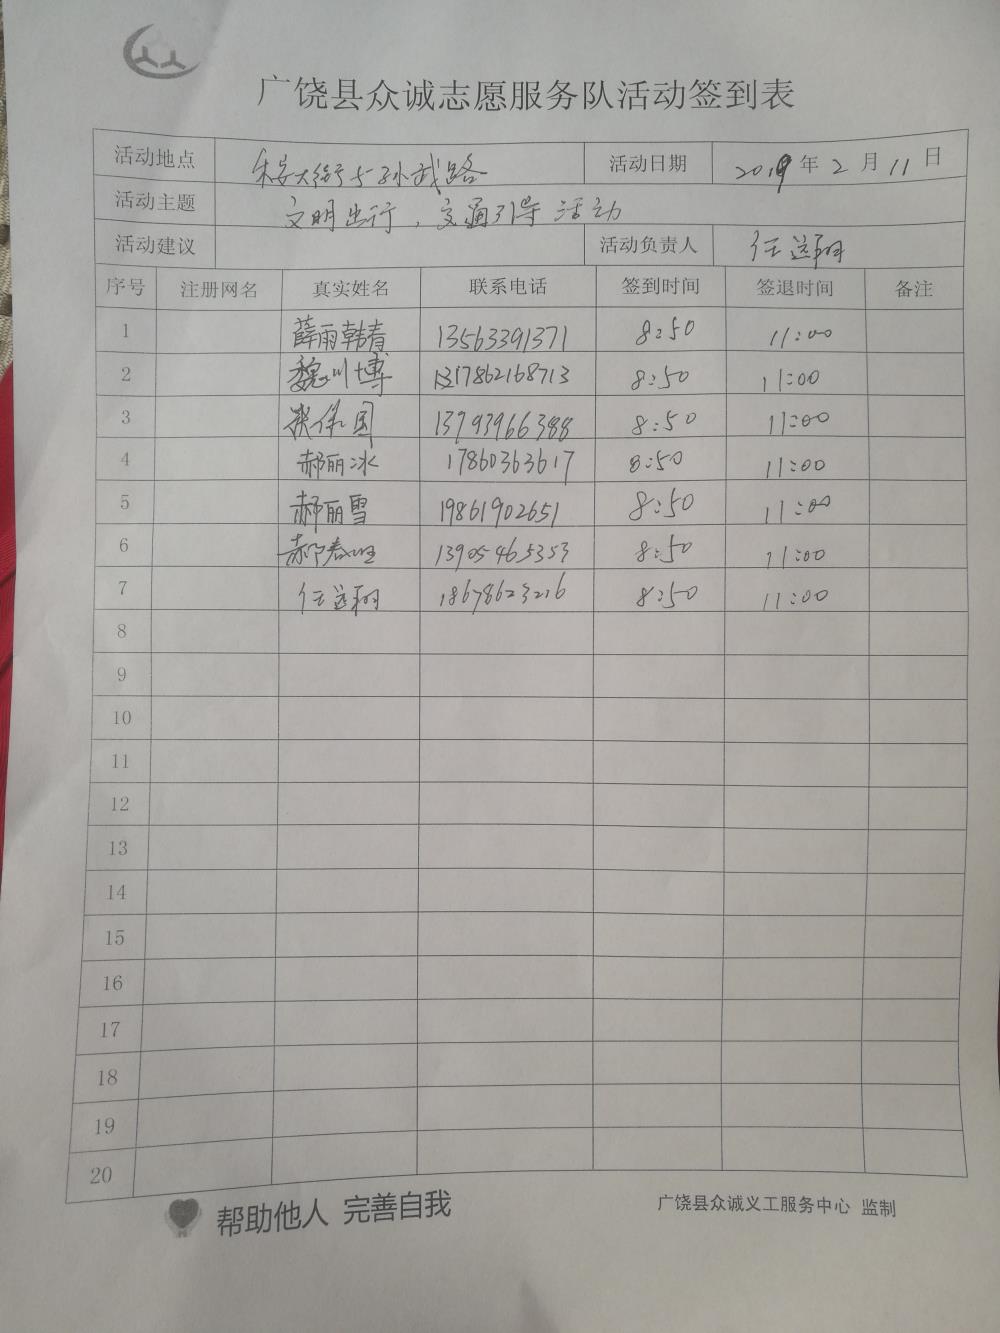 广饶县众诚志愿服务队活动签到表
活动地点 乐安大街与孙武路 活动日期 2019年2月11日
活动主题 文明出行，交通引导活动
活动建议 活动负责人 任远翔
序号 注册网名 真实姓名 联系电话 签到时间 签退时间 备注
1 薛雨韩春 13563391371 8:50 11:00
2 魏川博 17862168713 8:50 11:00
3 保国 13793966388 8:50 11:00
4 郝丽冰 17860363617 8:50 11:00
5 郝丽雪 19861902651 8:50 11:00
6 郝春 13905465353 8:50 11:00
7 任远翔 18678623216 8:50 11:00
8
9
10
11
12
13
14
15
16
17
18
19
20
帮助他人 完善自我 广饶县众诚义工服务中心 监制